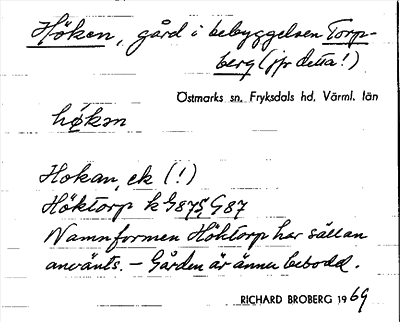 Höken, gård i bebyggelsen Torp-
berg (jfr detta!)
Östmarks sn. Fryksdals hd, Värml. län
høkɜn
Hokan, ek (!)
Höktorp k G875, G87
Namnformen Höktorp har sällan
använts. – Gården är ännu bebodd.
RICHARD BROBERG 1969